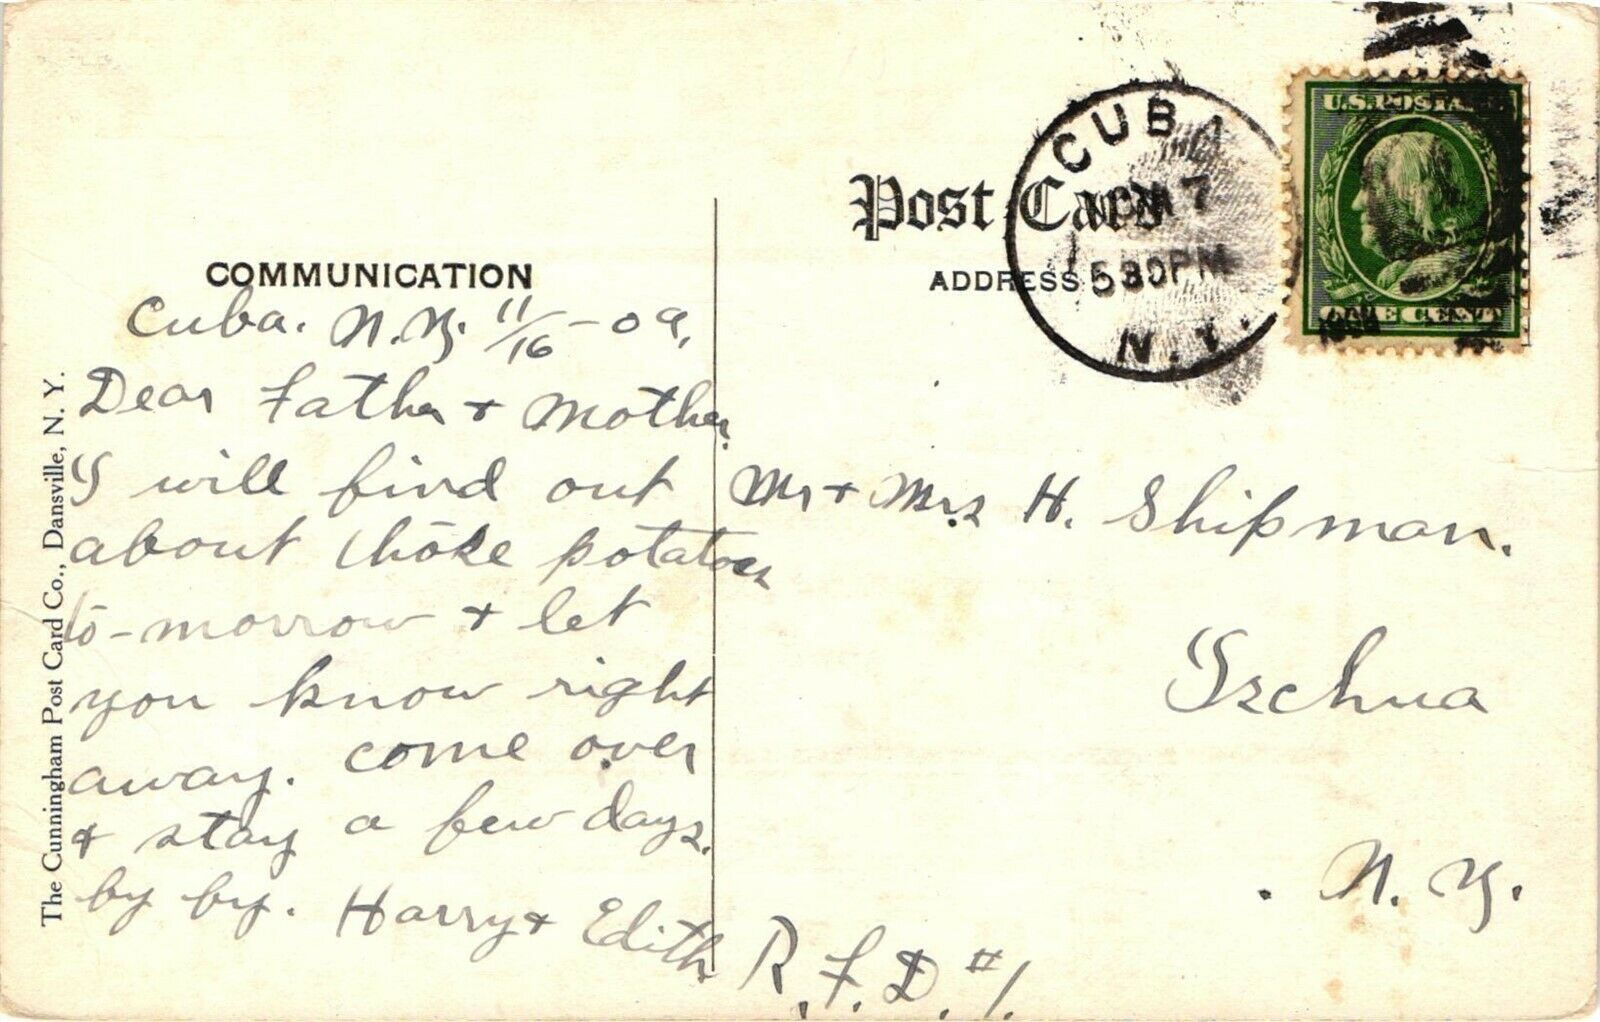 COMMUNICATION
Cuba. N.Y. 11/16 - 09,
Dear Father + Mother
I will find out
about choke potatoes
to-morrow + let
you know right
away. come over
+ stay a few days.
by by. Harry + Edith
The Cunningham Post Card Co., Dansville, N. Y.
Post Card
ADDRESS
CUBA
NOV 17
530 PM
N.Y.
U.S. POSTAGE
ONE CENT
Mr + Mrs H. Shipman.
Ischua
N.Y.
R.F.D. #1.